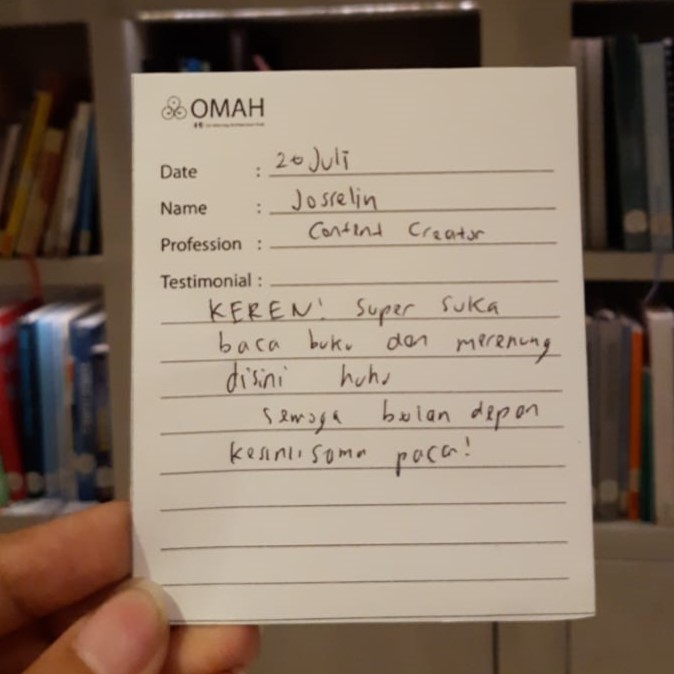 OMAH
Date : 20 Juli
Name : Josselin
Profession : Content Creator
Testimonial :
KEREN! Super suka
baca buku dan merenung
disini huhu
semoga bulan depan
kesini sama paca!